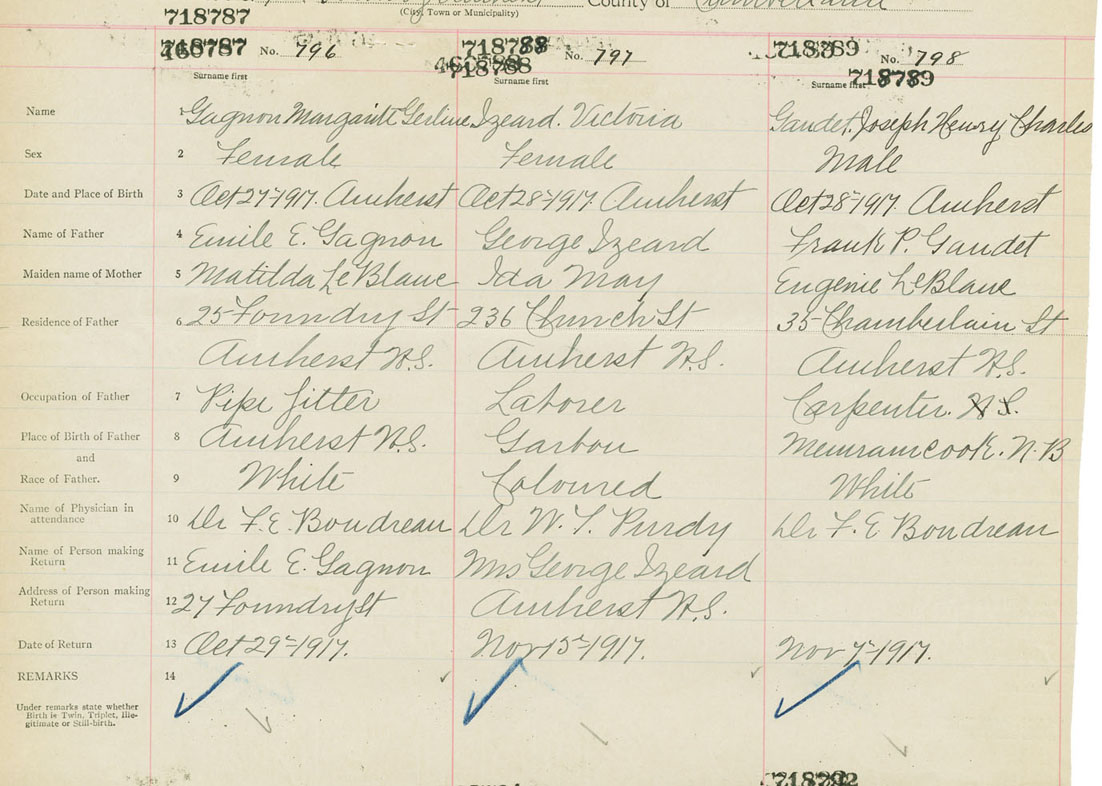 County of Cumberland
(City, Town or Municipality)
718787
718787 No. 796 718788 No. 797 718789 No. 798
718788 718789
Surname first Surname first Surname first
Name 1 Gagnon Margaritt Gerline Izeard. Victoria Gaudet, Joseph Henry Charles
Sex 2 Female Female Male
Date and Place of Birth 3 Oct 27-1917. Amherst Oct 28-1917. Amherst Oct 28-1917. Amherst
Name of Father 4 Emile E. Gagnon George Izeard Frank P. Gaudet
Maiden name of Mother 5 Matilda LeBlanc Ida May Eugenie LeBlanc
Residence of Father 6 25 Foundry St 236 Church St 35 Chamberlain St
Amherst N.S. Amherst N.S. Amherst N.S.
Occupation of Father 7 Pipe fitter Laborer Carpenter. N.S.
Place of Birth of Father 8 Amherst N.S. Garbou Memramcook. N.B
and
Race of Father. 9 White Coloured White
Name of Physician in
attendance 10 Dr F. E. Boudreau Dr W. T. Purdy Dr F. E Boudreau
Name of Person making
Return 11 Emile E. Gagnon Mrs George Izeard
Address of Person making
Return 12 27 Foundry St Amherst N.S.
Date of Return 13 Oct 29-1917. Nov 15-1917. Nov 7-1917.
REMARKS 14
Under remarks state whether
Birth is Twin, Triplet, Ille-
gitimate or Still-birth.